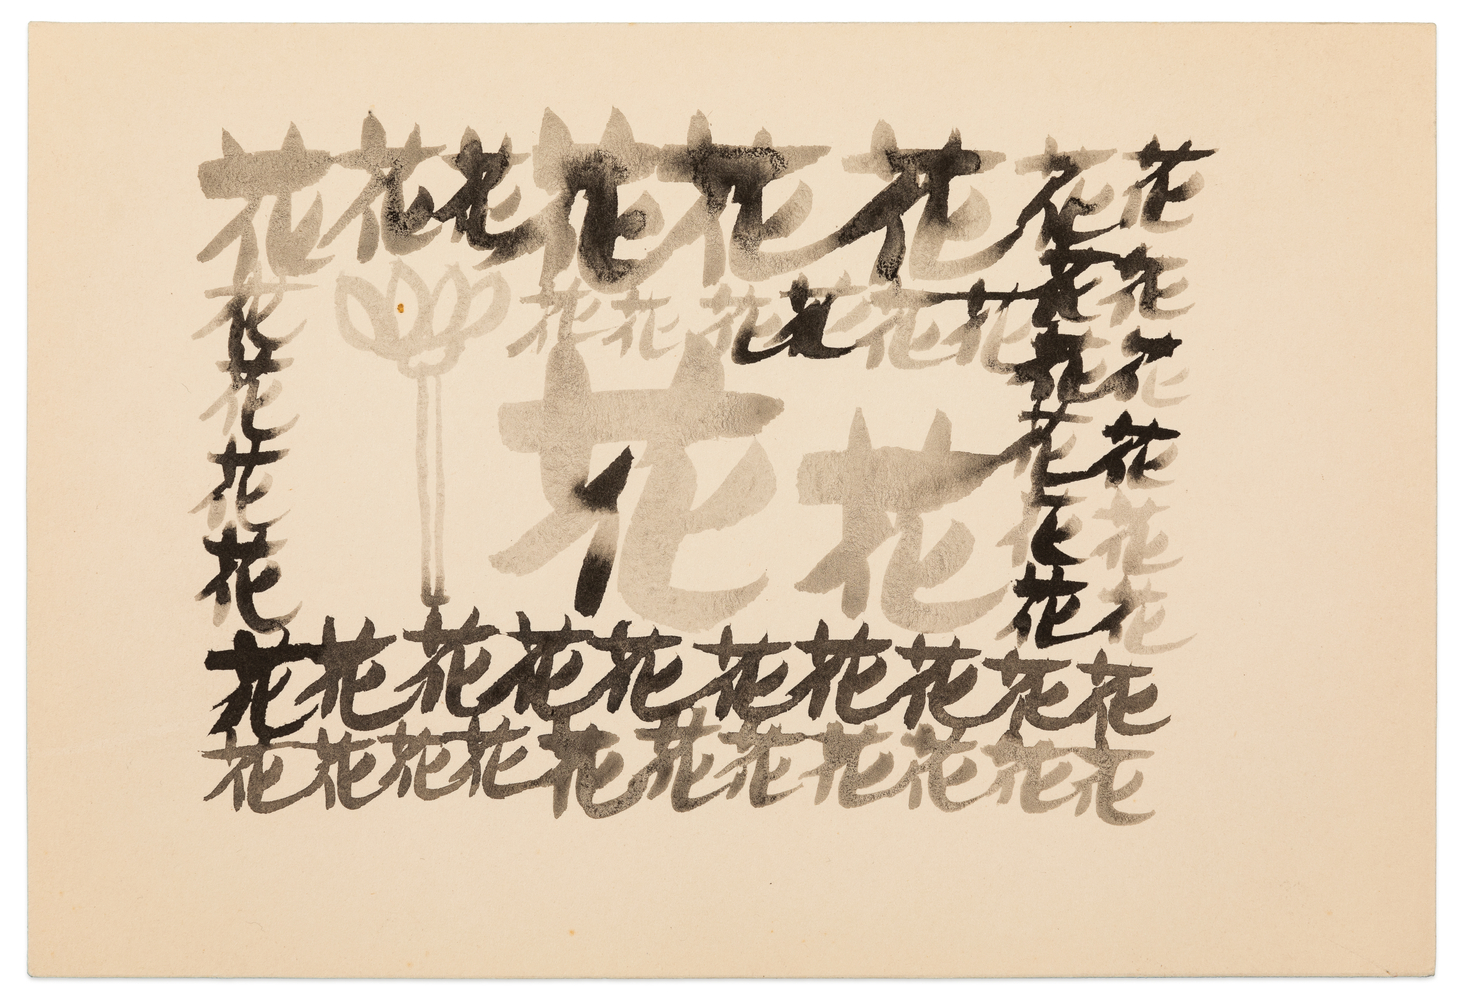 花花花花花花花花
花花花花花花花花花
花花花
花花花花花
花花花
花花
花花花花花花花花花花
花花花花花花花花花花花